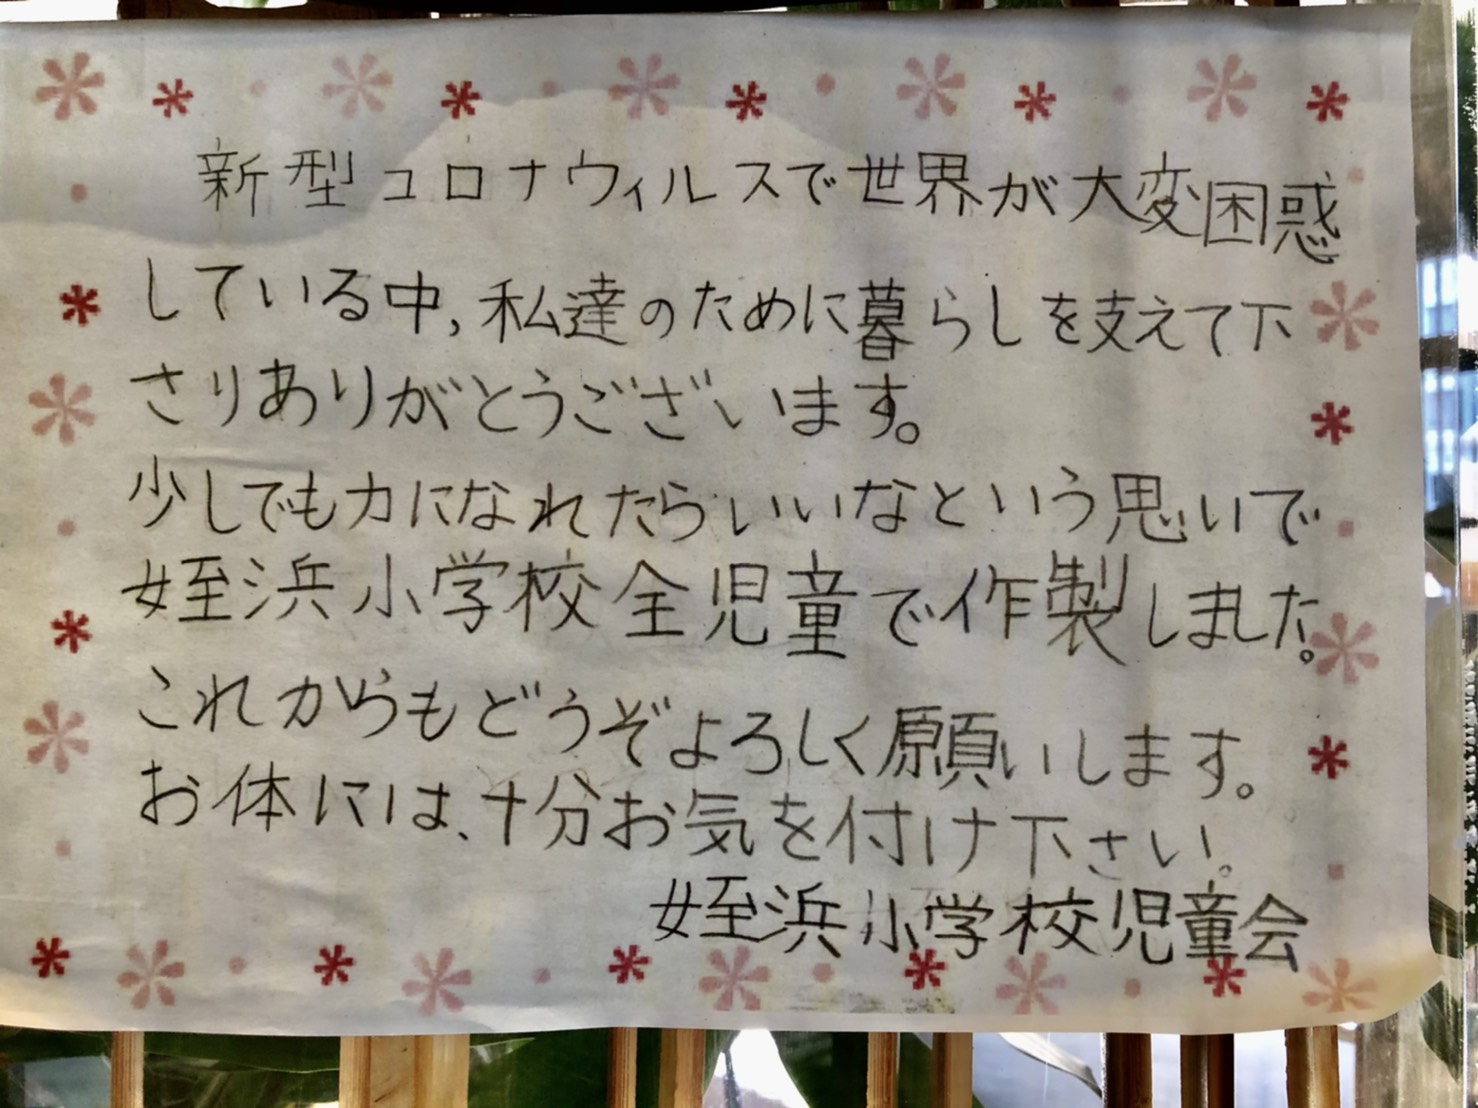 新型コロナウィルスで世界が大変困惑
している中,私達のために暮らしを支えて下
さりありがとうございます。
少しでも力になれたらいいなという思いで
姪浜小学校全児童で作製しました。
これからもどうぞよろしく願いします。
お体には、十分お気を付け下さい。
姪浜小学校児童会